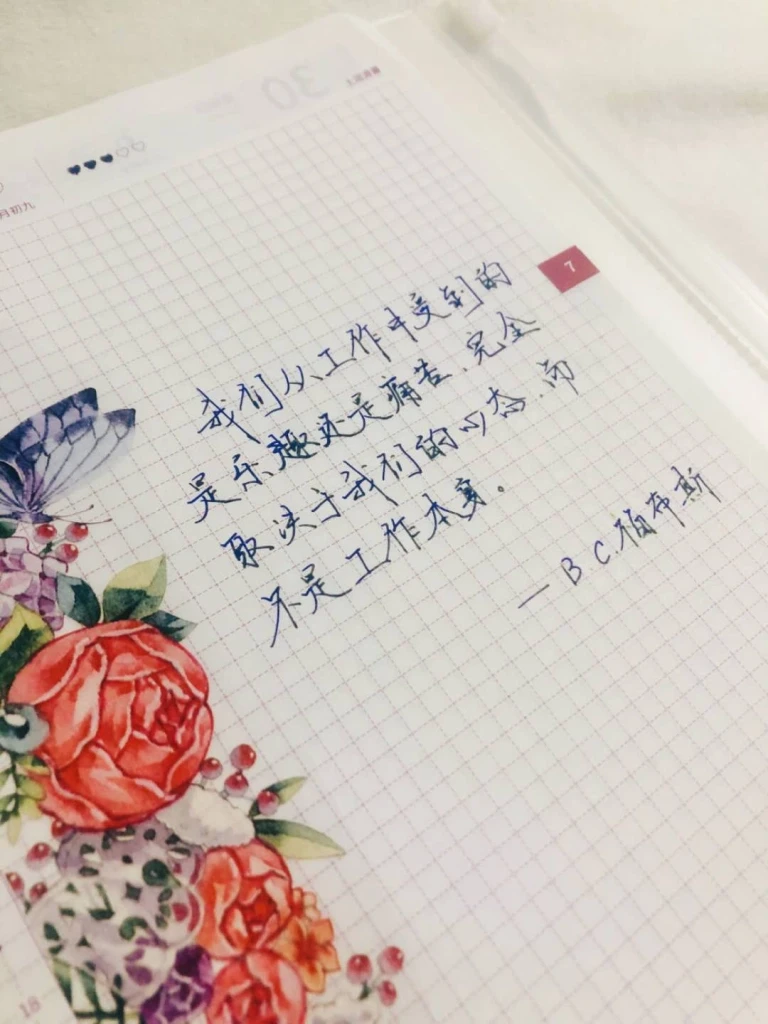 30
月初九
7
我们从工作中受到的
是乐趣还是痛苦、完全
取决于我们的心态、而
不是工作本身。
— B C.福布斯
18